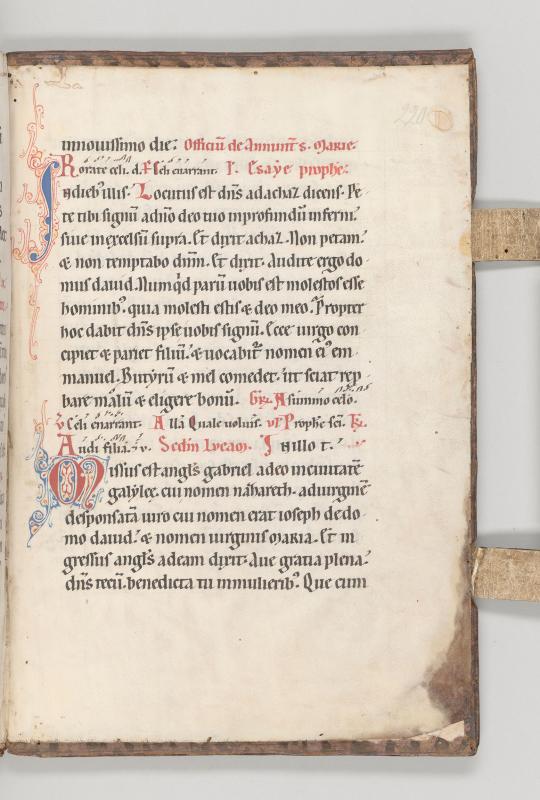 220
innouissimo die: Officiū de Annunt̄ s. Marie.
Rorate celi. d. ℣ Celi enarrant. Ysaÿe prophe:
In dieb᷒ illis. Locutus est dn̄s ad achaz dicens. Pe
te tibi signū adn̄o deo tuo inprofundū inferni.
siue inexcelsū supra. Et dixit achaz. Non petam.
& non temptabo dn̄m. Et dixit. Audite ergo do
mus dauid. Numqd parū uobis est molestos esse
hominib᷒. quia molesti estis & deo meo. Propter
hoc dabit dn̄s ipse uobis signū. Ecce uirgo con
cipiet & pariet filiū. & uocabit᷒ nomen ei᷒ em
manuel. Butyrū & mel comedet. ut sciat rep
bare malū & eligere bonū. Gr̄. A summo celo.
℣ Celi enarrant. All̄a Quale uoluis. ul̄ Prophe sc̄i. Tr̄.
Audi filia. Scdm Lucam. In illo t.
Missus est angl̄s gabriel adeo inciuitatē
galylee. cui nomen nazareth. aduirginē
desponsatā uiro cui nomen erat ioseph de do
mo dauid. & nomen uirginis maria. Et in
gressus angl̄s ad eam dixit. Aue gratia plena.
dn̄s tecū. benedicta tu inmulierib᷒. Que cum